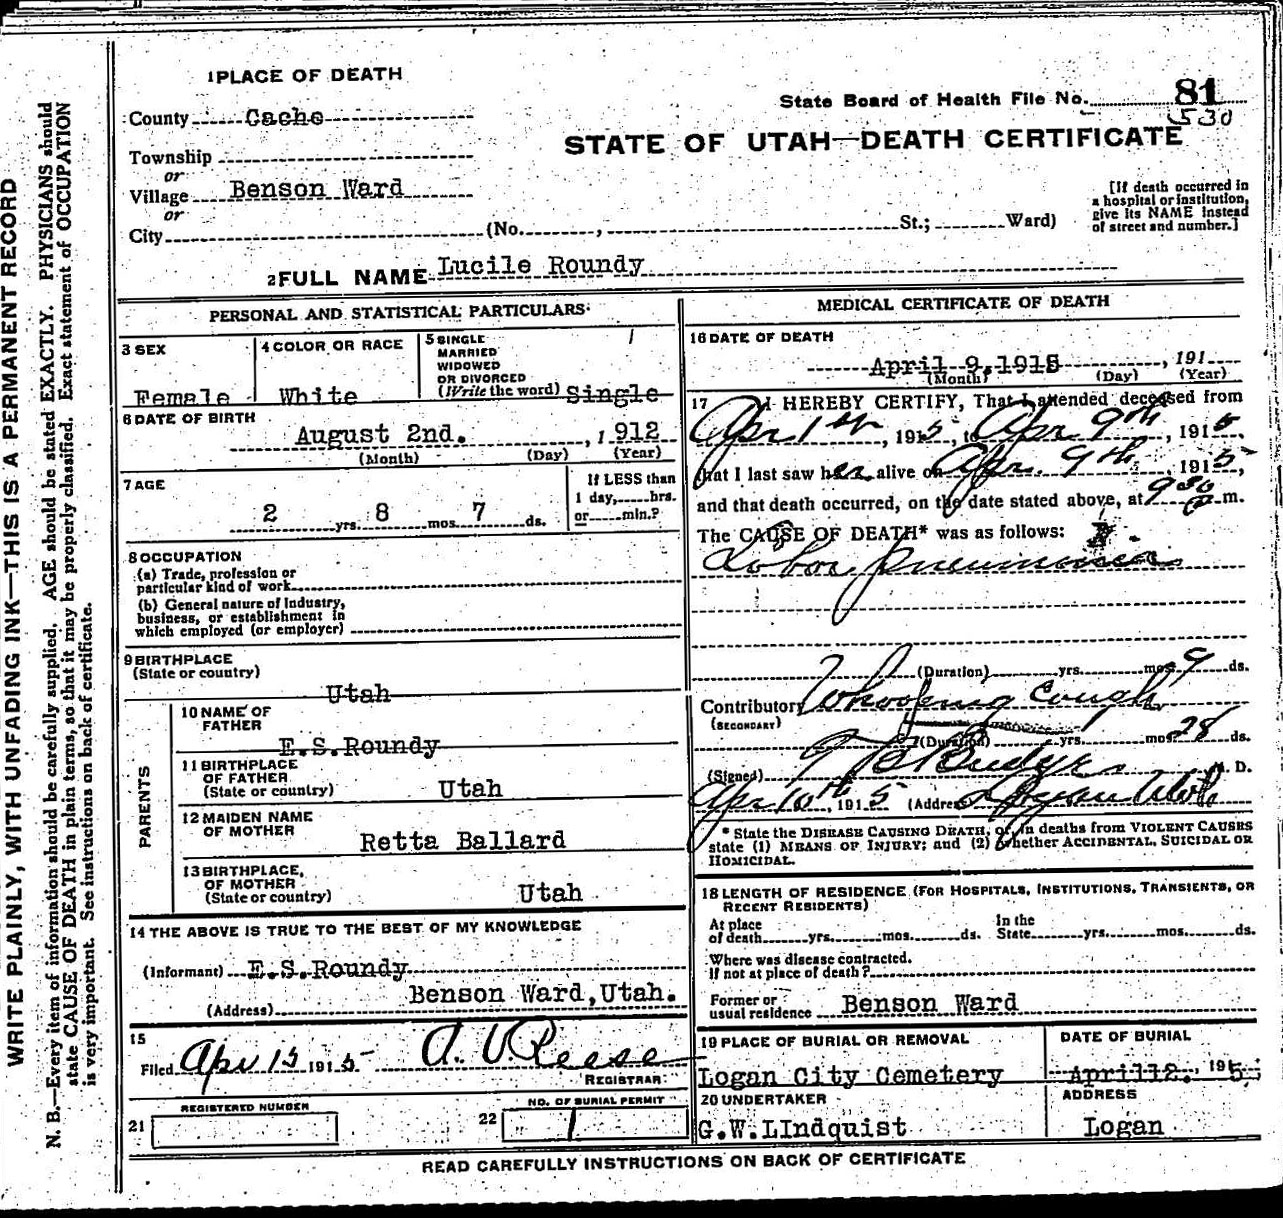 WRITE PLAINLY, WITH UNFADING INK—THIS IS A PERMANENT RECORD
N. B.—Every item of information should be carefully supplied. AGE should be stated EXACTLY. PHYSICIANS should
state CAUSE OF DEATH in plain terms, so that it may be properly classified. Exact statement of OCCUPATION
is very important. See instructions on back of certificate.
1 PLACE OF DEATH
County Cache
Township
or
Village Benson Ward
or
City (No. , St.; Ward)
State Board of Health File No. 81
530
STATE OF UTAH—DEATH CERTIFICATE
[If death occurred in
a hospital or institution,
give its NAME instead
of street and number.]
2 FULL NAME Lucile Roundy
PERSONAL AND STATISTICAL PARTICULARS
3 SEX
Female
4 COLOR OR RACE
White
5 SINGLE
MARRIED
WIDOWED
OR DIVORCED
(Write the word) Single
6 DATE OF BIRTH
August 2nd. , 1 912
(Month) (Day) (Year)
7 AGE
2 yrs. 8 mos. 7 ds.
If LESS than
1 day, hrs.
or min.?
8 OCCUPATION
(a) Trade, profession or
particular kind of work
(b) General nature of Industry,
business, or establishment in
which employed (or employer)
9 BIRTHPLACE
(State or country)
Utah
PARENTS
10 NAME OF
FATHER
E.S.Roundy
11 BIRTHPLACE
OF FATHER
(State or country) Utah
12 MAIDEN NAME
OF MOTHER
Retta Ballard
13 BIRTHPLACE,
OF MOTHER
(State or country) Utah
14 THE ABOVE IS TRUE TO THE BEST OF MY KNOWLEDGE
(Informant) E.S.Roundy
(Address) Benson Ward,Utah.
15
Filed Apr 13 1915 A. V. Reese
REGISTRAR
21 REGISTERED NUMBER
22 NO. OF BURIAL PERMIT
1
MEDICAL CERTIFICATE OF DEATH
16 DATE OF DEATH
April 9,1915 , 191
(Month) (Day) (Year)
17 I HEREBY CERTIFY, That I attended deceased from
Apr 1st , 1915, to Apr 9th , 1915,
that I last saw her alive on Apr. 9th , 1915,
and that death occurred, on the date stated above, at 9 30 m.
The CAUSE OF DEATH* was as follows:
Lobar pneumonia
(Duration) yrs. mos. 9 ds.
Contributory Whooping Cough
(SECONDARY)
(Duration) yrs. mos. 28 ds.
(Signed) T B Budge M. D.
Apr 10th , 1915 (Address) Logan Utah
* State the DISEASE CAUSING DEATH, or, in deaths from VIOLENT CAUSES
state (1) MEANS OF INJURY; and (2) whether ACCIDENTAL, SUICIDAL OR
HOMICIDAL.
18 LENGTH OF RESIDENCE (FOR HOSPITALS, INSTITUTIONS, TRANSIENTS, OR
RECENT RESIDENTS)
At place
of death yrs. mos. ds. In the State yrs. mos. ds.
Where was disease contracted.
If not at place of death?
Former or
usual residence Benson Ward
19 PLACE OF BURIAL OR REMOVAL
Logan City Cemetery
DATE OF BURIAL
April12. 1915
20 UNDERTAKER
G.W.LIndquist
ADDRESS
Logan
READ CAREFULLY INSTRUCTIONS ON BACK OF CERTIFICATE